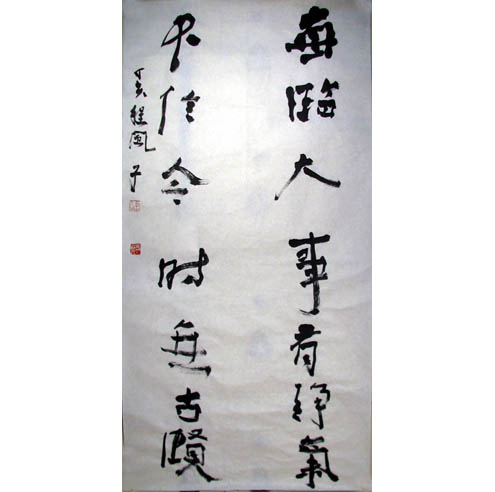 每臨大事有靜氣
不信今時無古賢
丁亥程風子